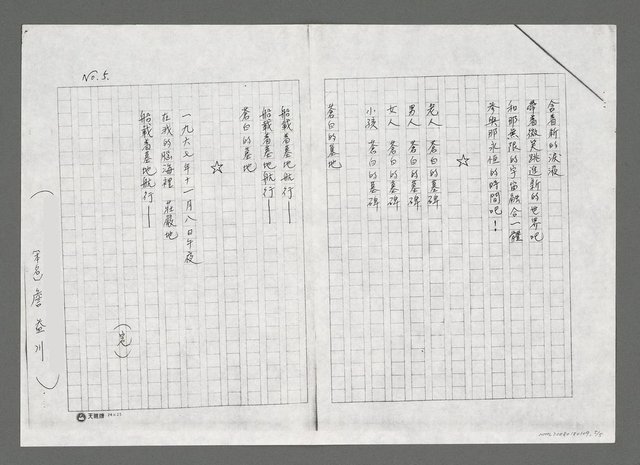 含着新的淚液
帶着微笑跳進新的世界吧
和那無限的宇宙融合一體
參與那永恒的時間吧！
☆
老人 蒼白的墓碑
男人 蒼白的墓碑
女人 蒼白的墓碑
小孩 蒼白的墓碑
蒼白的墓地
No. 5.
船載着墓地航行——
船載着墓地航行——
蒼白的墓地
☆
一九六七年十一月八日午夜
在我的腦海裡 莊嚴地
船載着墓地航行——
（完）
（本名）詹益川
24x25